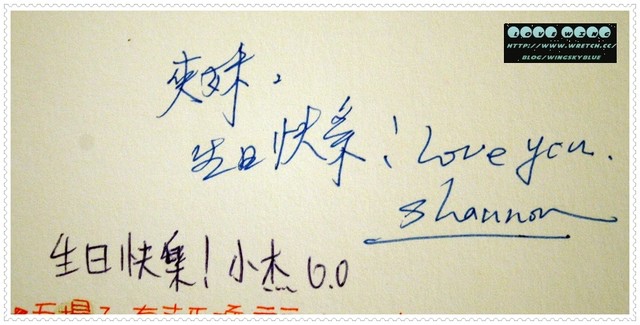 LOVE WING
HTTP://WWW.WRETCH.CC/
BLOG/WINGSKYBLUE
夾妹,
生日快樂! Love you.
Shannon
生日快樂! 小杰 6.0